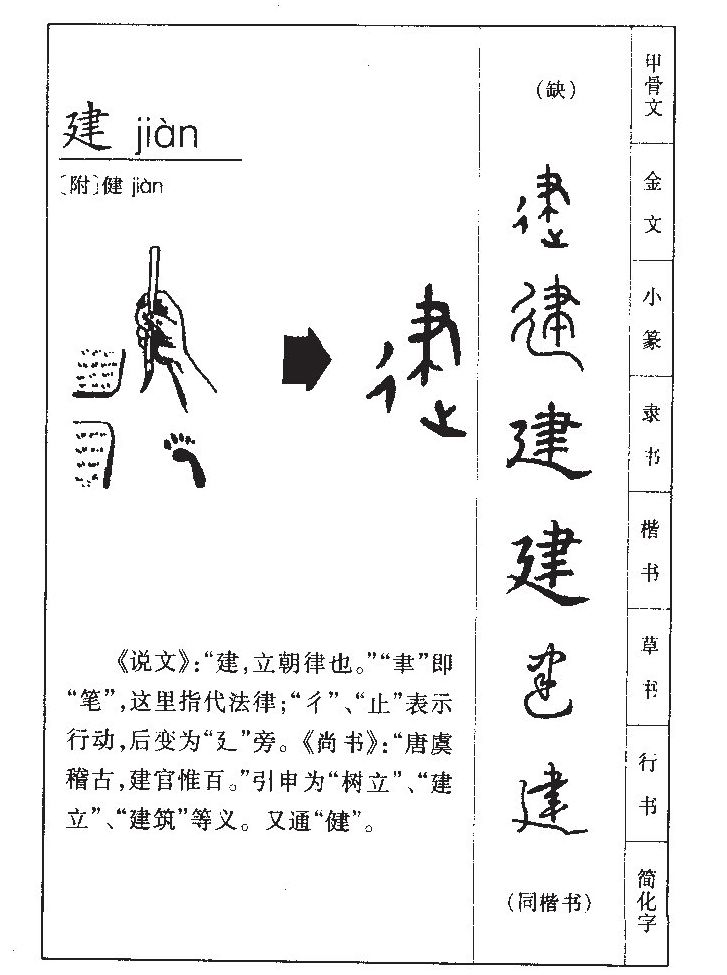 建 jiàn
〔附〕健 jiàn
《说文》：“建，立朝律也。”“聿”即
“笔”，这里指代法律；“彳”、“止”表示
行动，后变为“廴”旁。《尚书》：“唐虞
稽古，建官惟百。”引申为“树立”、“建
立”、“建筑”等义。又通“健”。
（缺）
甲骨文
建
金文
建
小篆
建
隶书
建
楷书
建
草书
建
行书
（同楷书）
简化字